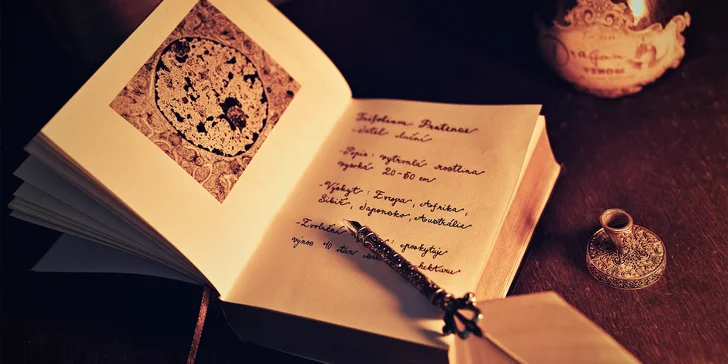 Trifolium Pratense
- Jetel luční
- Popis : vytrvalá rostlina
vysoká 20-60 cm
- Výskyt : Evropa, Afrika,
Sibiř, Japonsko, Austrálie
poskytuje
výnos 10
Dragon
VENOM